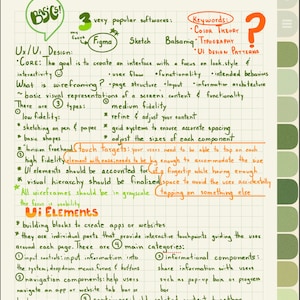 BASICS
3 very popular softwares:
Keywords:
• Color Theory
• Typography
• UI Design Patterns
?
Figma Sketch Balsamiq
Ux/Ui Design:
• Core: The goal is to create an interface with a focus on look, style &
interactivity
• user flow • functionality • intended behavious
What is wireframing? • page structure • layout • information architecture
~ basic visual representations of a screens content & functionality
There are 3 types:
① low fidelity:
* sketching on pen &
paper
② medium fidelity
* refine & adjust your content
* grid systems to ensure accurate spacing
* adjust the sizes of each component
③ high fidelity
touch targets: your user need to be able to tap on each
element with
to be big enough to accommodate the size
of a fingertip while having enough
space to avoid the user accidentally
tapping on something else
* UI elements should be accounted for
* visual hierarchy should be finalised
* All wireframes should be in grayscale
the focus is usability
Ui Elements
* building blocks to create apps or websites
* they are individual parts that provide interactive touchpoints guiding the user
around each page. There are 4 main categories:
① input controls: input information into
the system, dropdown menus forms & buttons
② navigation components: help users
navigate an app or website tab bar or
③ informational components:
share information with users
such as pop-up bars or program
bar